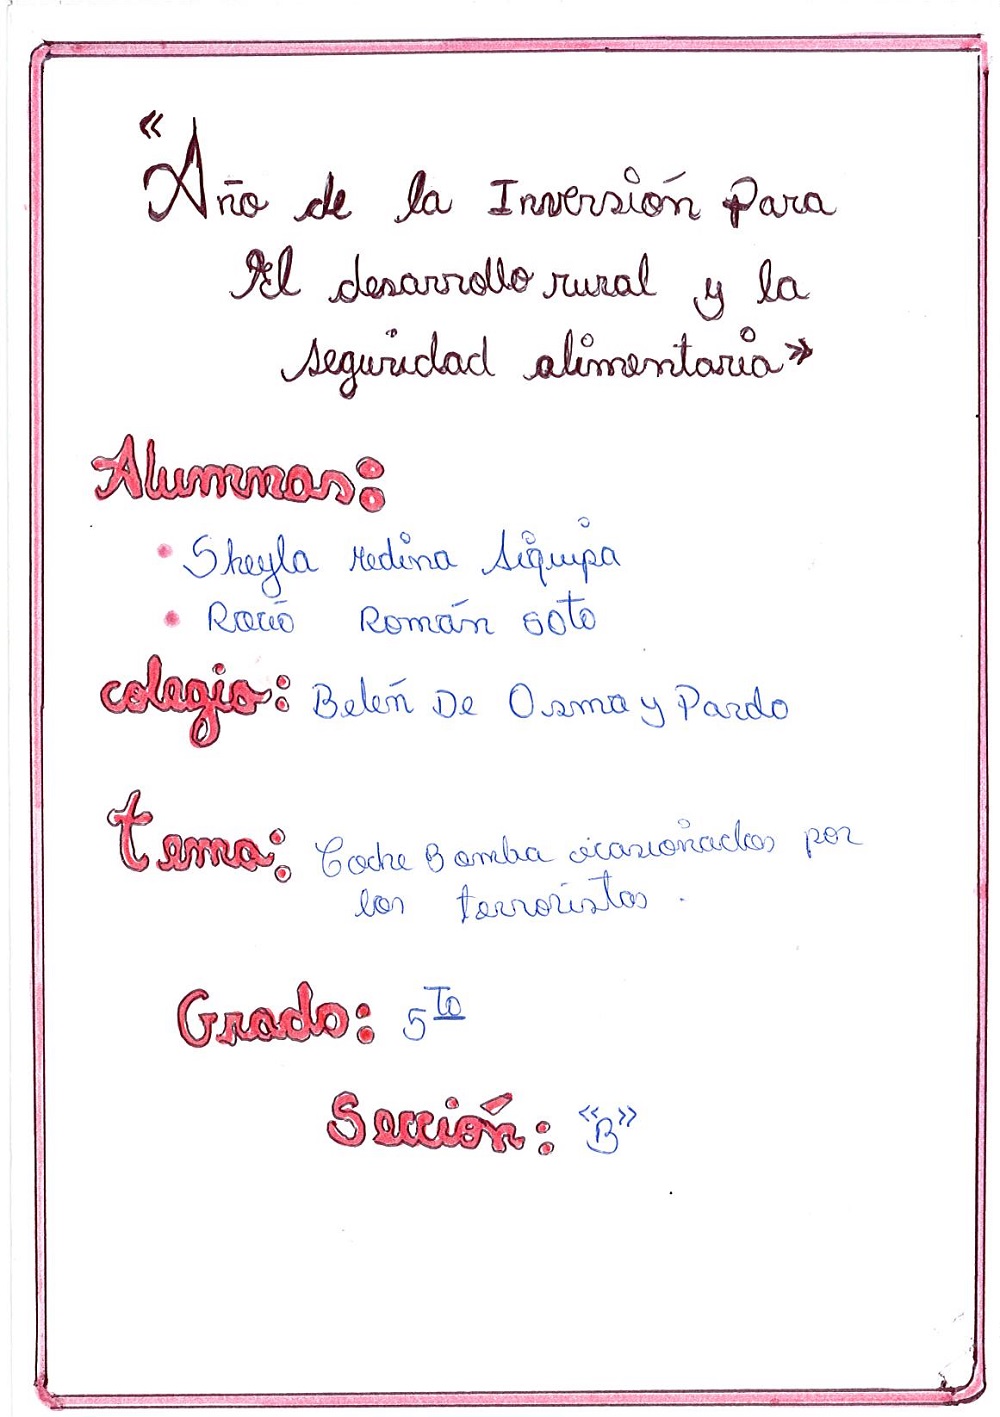 «Año de la Inversión Para
El desarrollo rural y la
seguridad alimentaria»
Alumnas:
• Sheyla Medina Siquipa
• Rocío Román Soto
colegio: Belén De Osma y Pardo
tema: Coche Bomba ocasionados por
los terroristas.
Grado: 5to
Sección: «B»